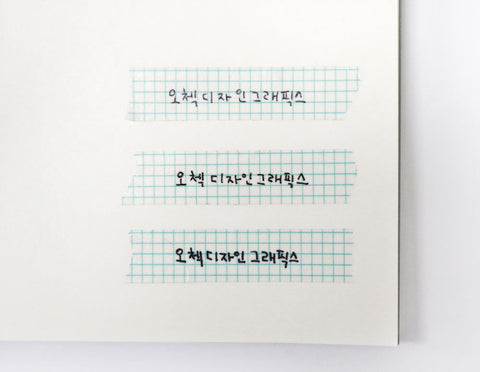 오첵디자인그래픽스
오첵디자인그래픽스
오첵디자인그래픽스